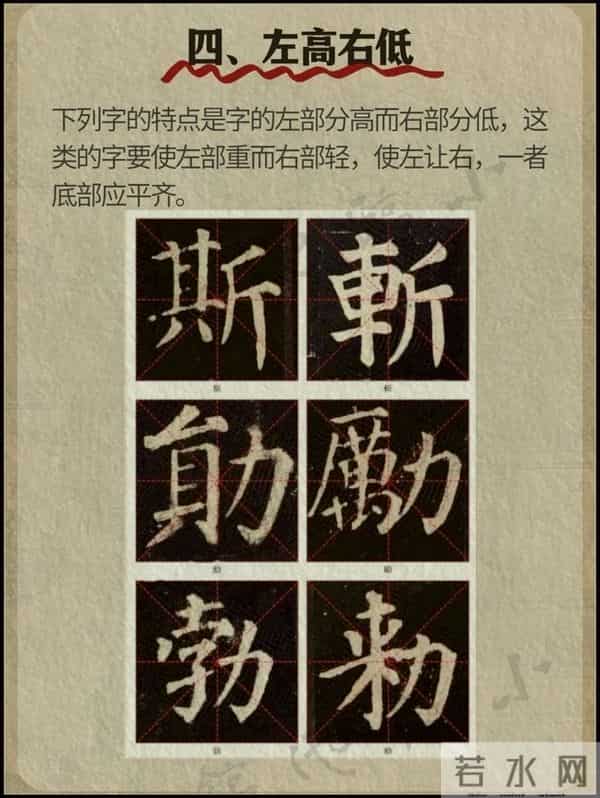 四、左高右低
下列字的特点是字的左部分高而右部分低，这
类的字要使左部重而右部轻，使左让右，一者
底部应平齐。
斯 斬
勛 勵
勃 勑
若水网